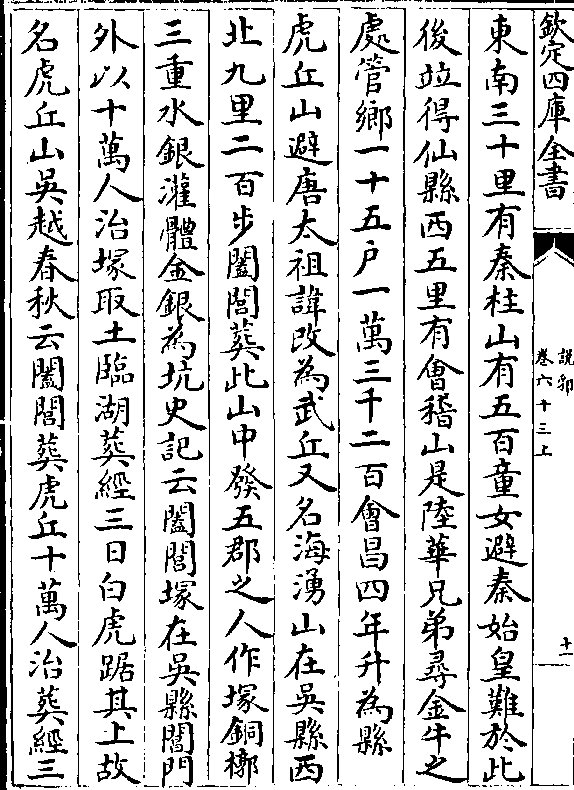 欽定四庫全書
說郛
卷六十三上
十一
東南三十里有秦柱山有五百童女避秦始皇難於此
後竝得仙縣西五里有會稽山是陸華兄弟尋金牛之
處管鄉一十五户一萬三千二百會昌四年升為縣
虎丘山避唐太祖諱改為武丘又名海湧山在吳縣西
北九里二百步闔閭葬此山中發五郡之人作塚銅槨
三重水銀灌體金銀為坑史記云闔閭塚在吳縣閶門
外以十萬人治塚取土臨湖葬經三日白虎踞其上故
名虎丘山吳越春秋云闔閭葬虎丘十萬人治葬經三